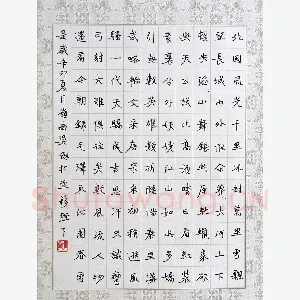 北國風光千里冰封萬里雪飄
望長城内外惟余莽莽大河上下
頓失滔滔山舞銀蛇原馳蠟象
欲與天公試比高須晴日看紅裝
素裹分外妖嬈江山如此多嬌
引無數英雄競折腰惜秦皇漢
武略輸文采唐宗宋祖稍遜風
騷一代天驕成吉思汗只識彎
弓射大雕俱往矣數風流人物
還看今朝錄毛澤東沁園春雪
是歲辛卯夏日